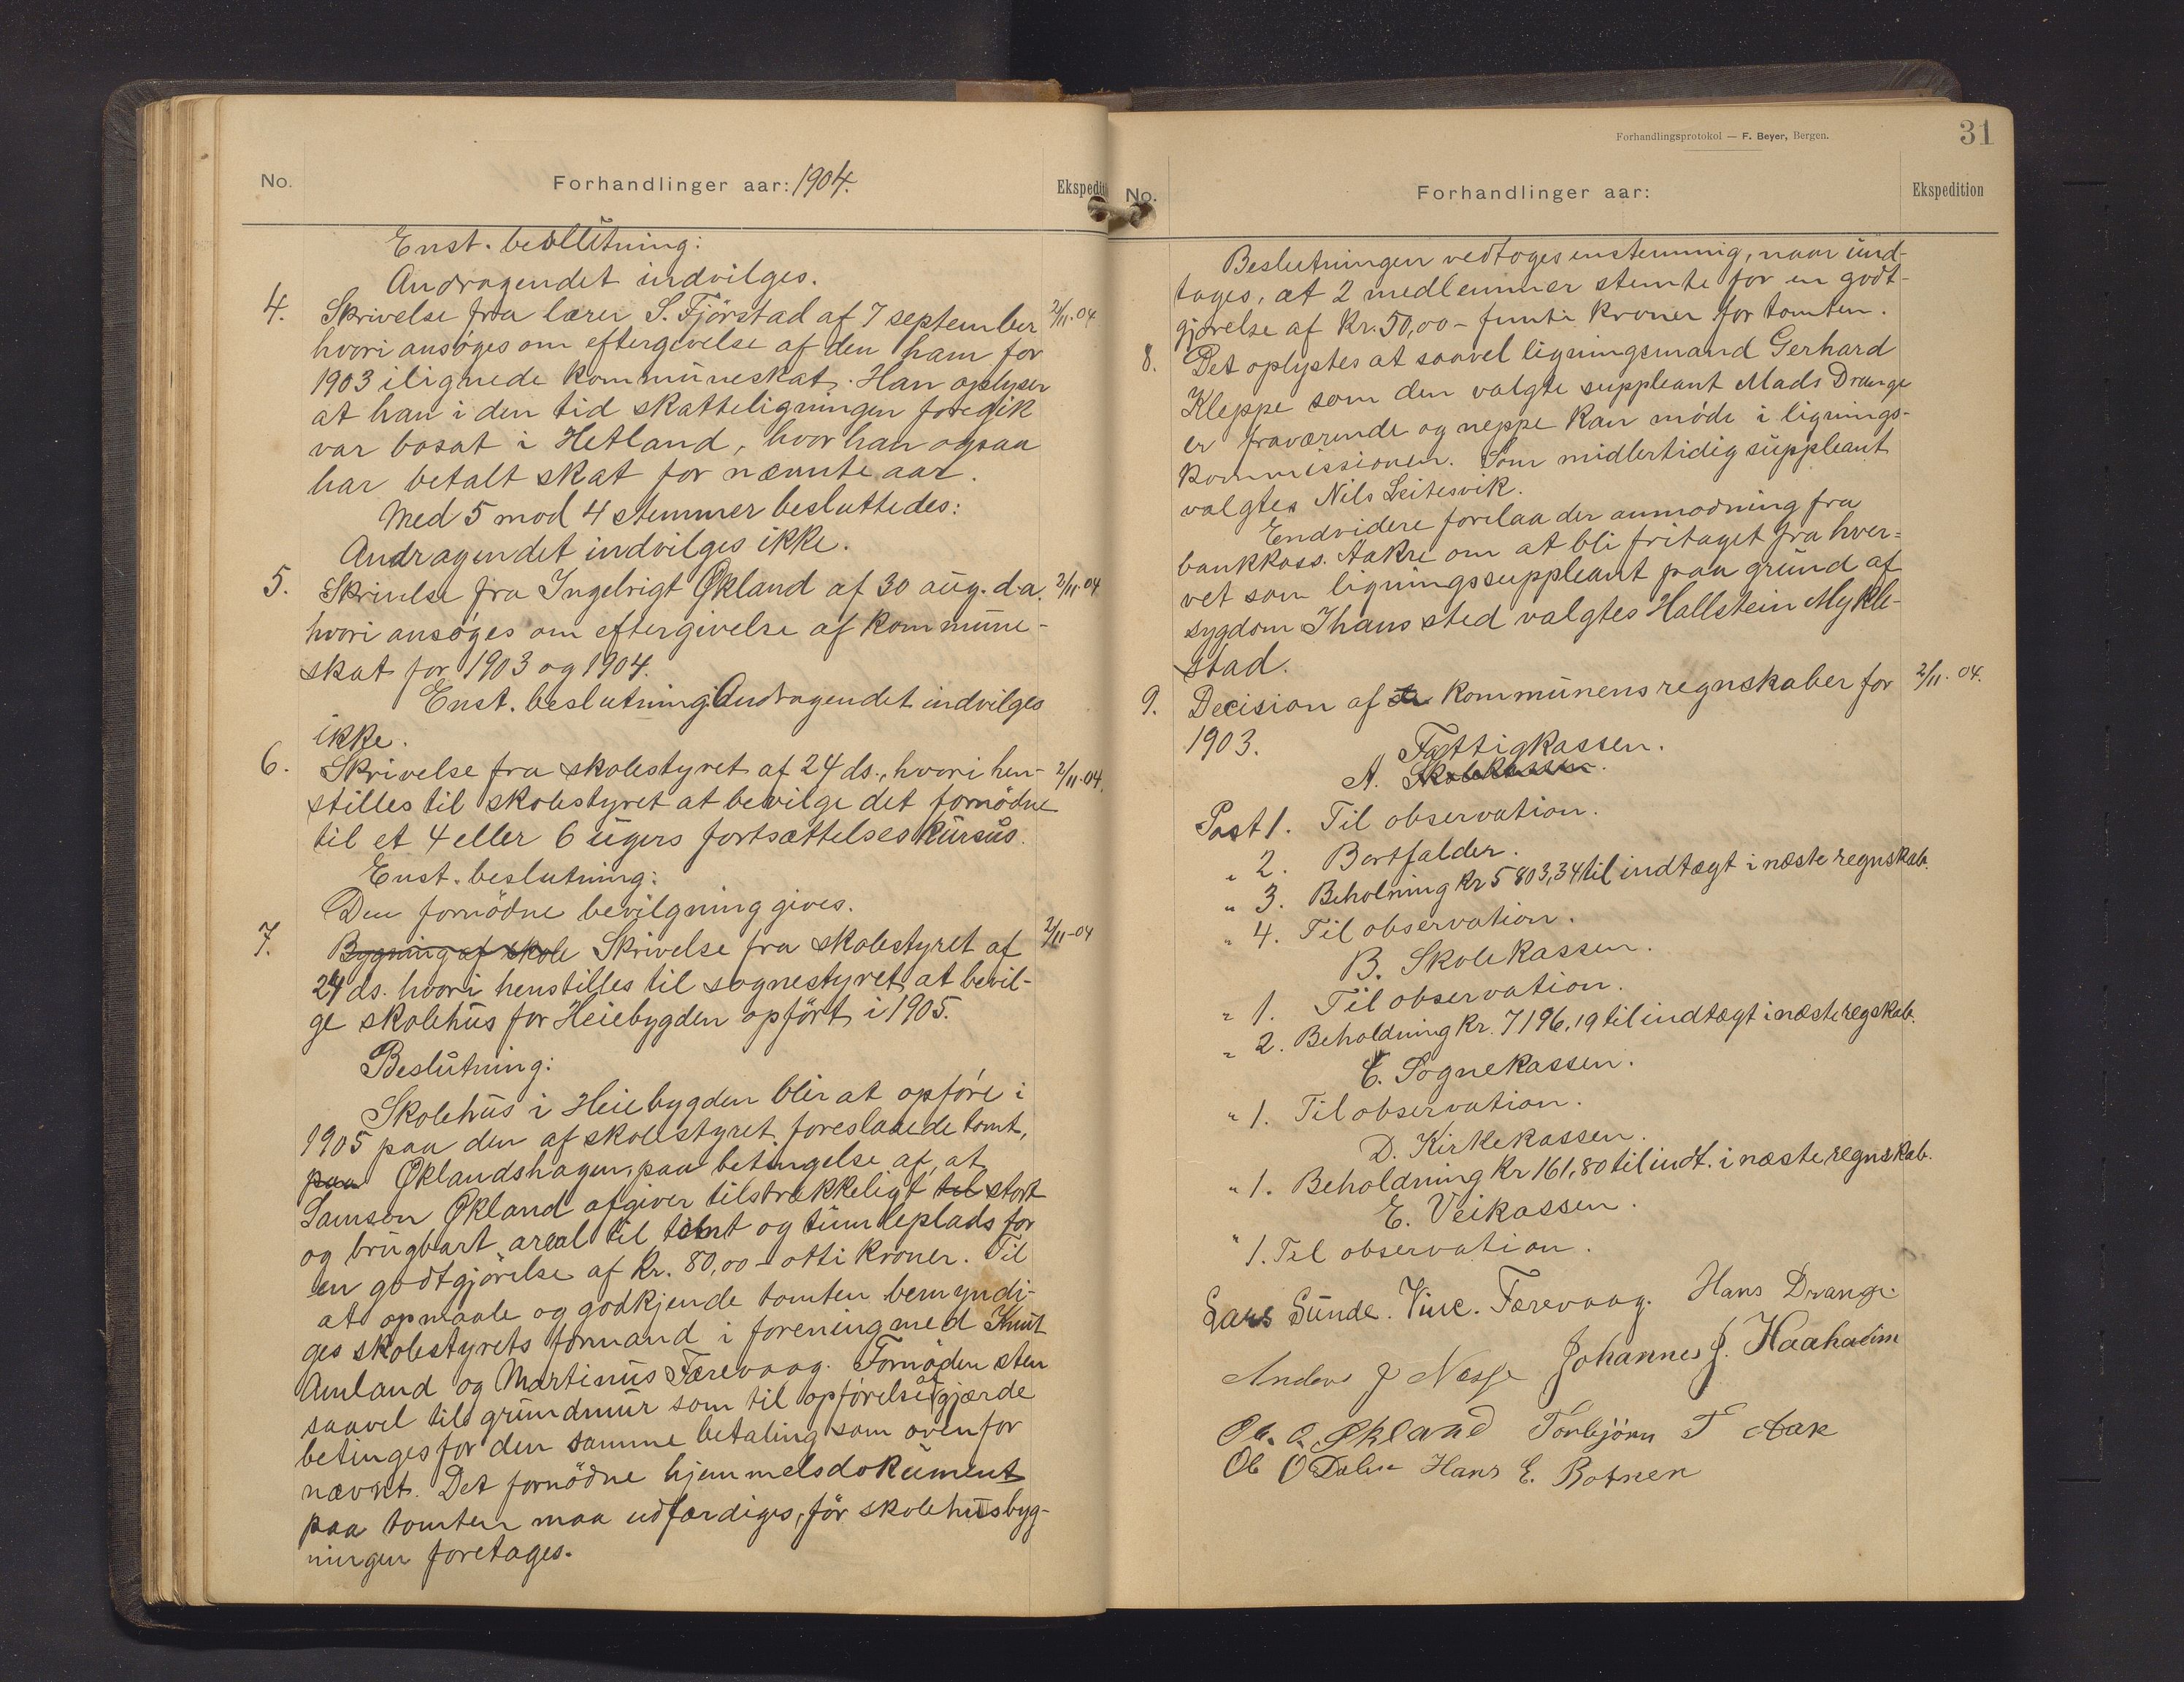 No.
Forhandlinger aar: 1904.
Ekspedit
Enst. beslutning:
Andragendet indvilges.
4. Skrivelse fra lærer S. Fjörstad af 7 september 2/11.04
hvori ansöges om eftergivelse af den ham for
1903 ilignede kommuneskat. Han oplyser
at han i den tid skatteligningen foregik
var bosat i Hetland, hvor han ogsaa
har betalt skat for nævnte aar.
Med 5 mod 4 stemmer besluttedes:
Andragendet indvilges ikke.
5. Skrivelse fra Ingebrigt Økland af 30 aug. d.a. 2/11.04
hvori ansöges om eftergivelse af kommune-
skat for 1903 og 1904.
Enst. beslutning: Andragendet indvilges
ikke.
6. Skrivelse fra skolestyret af 24 ds., hvori hen- 2/11.04.
stilles til skolestyret at bevilge det fornödne
til et 4 eller 6 ugers fortsættelseskursus.
Enst. beslutning:
Den fornödne bevilgning gives.
7. Bygning af skole Skrivelse fra skolestyret af 2/11-04
24 ds. hvori henstilles til sognestyret at bevil-
ge skolehus for Heiebygden opfört i 1905.
Beslutning:
Skolehus i Heiebygden blir at opföre i
1905 paa den af skolestyret foreslaaede tomt,
paa Øklandshagen, paa betingelse af, at
Samson Økland afgiver tilstrækkeligt til stort
og brugbart areal til tomt og tumleplads for
en godtgjörelse af kr. 80,00 – otti kroner. Til
at opmaale og godkjende tomten bemyndi-
ges skolestyrets formand i forening med Knut
Amland og Martinus Færevaag. Fornöden sten
saavel til grundmur som til opförelse af gjærde
betinges for den samme betaling som ovenfor
nævnt. Det fornödne hjemmelsdokument
paa tomten maa udfærdiges, för skolehusbyg-
ningen foretages.
Forhandlingsprotokol — F. Beyer, Bergen.
31
No.
Forhandlinger aar:
Ekspedition
Beslutningen vedtoges enstemmig, naar und-
tages, at 2 medlemmer stemte for en godt-
gjörelse af kr. 50,00 – femti kroner for tomten.
8. Det oplystes at saavel ligningsmand Gerhard
Kleppe som den valgte suppleant Mads Drange
er fraværende og neppe kan möde i lignings-
kommissionen. Som midlertidig suppleant
valgtes Nils Leitesvik.
Endvidere forelaa der anmodning fra
bankkass. Aakre om at bli fritaget fra hver=
vet som ligningssuppleant paa grund af
sygdom I hans sted valgtes Hallstein Mykle-
stad.
9. Decision af kommunens regnskaber for 2/11.04.
1903.
Fattigkassen.
A. Skolekassen.
Post 1. Til observation.
" 2. Bortfalder.
" 3. Beholning kr 5803,34 til indtægt i næste regnskab.
" 4. Til observation.
B. Skolekassen.
" 1. Til observation.
" 2. Beholdning kr. 7196,19 til indtægt i næste regskab.
C. Sognekassen.
" 1. Til observation.
D. Kirkekassen.
" 1. Beholdning kr 161,80 til indt. i næste regnskab.
E. Veikassen.
" 1. Til observation.
Lars Sunde. Vinc. Færevaag. Hans Drange.
Anders J Nesse Johannes J. Haaheim
Ole O. Økland Torbjörn T Aak
Ole O Dalen Hans E. Botnen